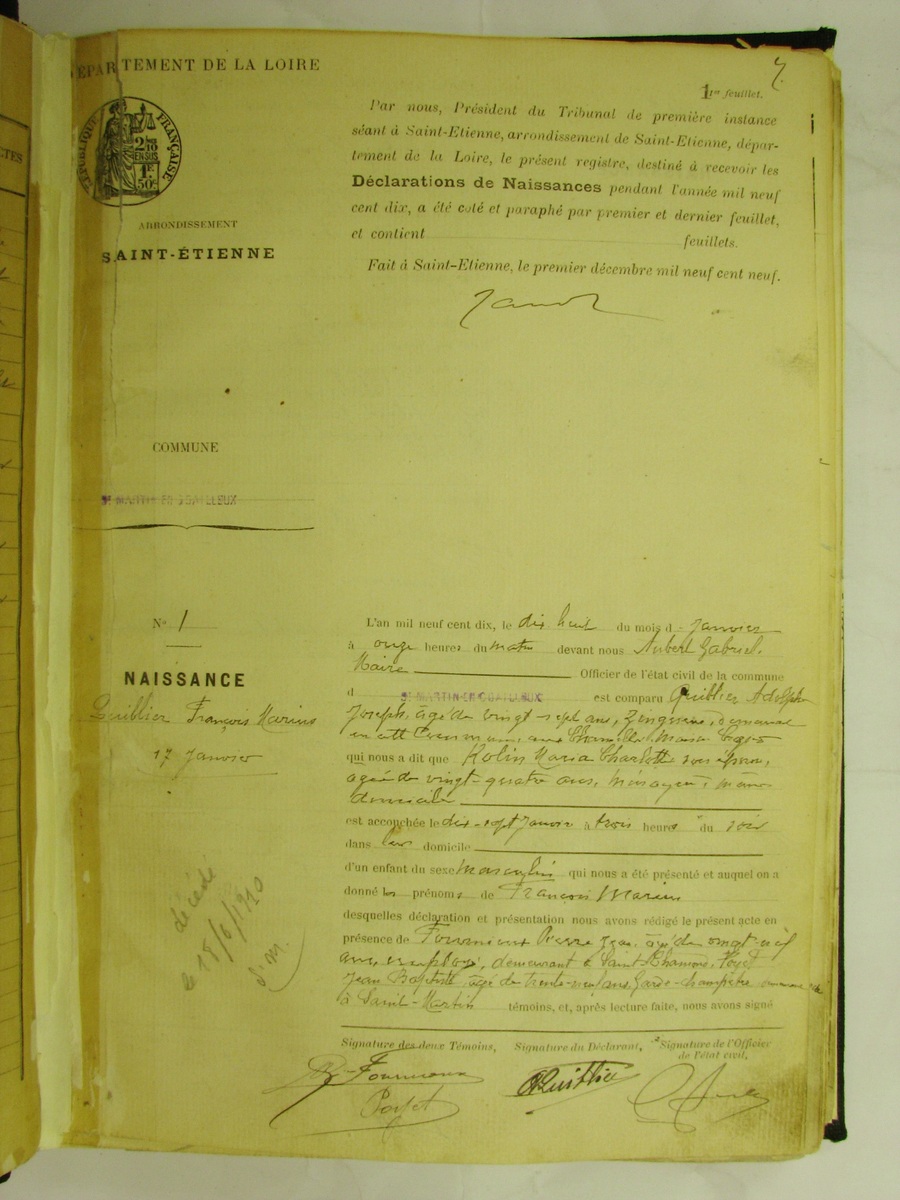 DÉPARTEMENT DE LA LOIRE
RÉPUBLIQUE FRANÇAISE
2/10 EN SUS
1F 50c
ARRONDISSEMENT
SAINT-ÉTIENNE
7.
1er feuillet.
Par nous, Président du Tribunal de première instance
séant à Saint-Etienne, arrondissement de Saint-Etienne, dépar-
tement de la Loire, le présent registre, destiné à recevoir les
Déclarations de Naissances pendant l'année mil neuf
cent dix, a été coté et paraphé par premier et dernier feuillet,
et contient feuillets.
Fait à Saint-Etienne, le premier décembre mil neuf cent neuf.
COMMUNE
St MARTIN-EN-COAILLEUX
N° 1
NAISSANCE
Quiblier François Marius
17 Janvier
décédé
le 18/6/1910
L'an mil neuf cent dix, le dix huit du mois d Janvier
à onze heures du matin devant nous Aubert Gabriel
Maire Officier de l'état civil de la commune
d St MARTIN-EN-COAILLEUX est comparu Quiblier Adolphe
Joseph, âgé de vingt-sept ans, Zingueur, demeurant
en cette Commune, Maison
qui nous a dit que Rolin Maria Charlotte son épouse,
agée de vingt-quatre ans, ménagère, même
domicile
est accouchée le dix-sept Janvier à trois heures du soir
dans leur domicile
d'un enfant du sexe masculin qui nous a été présenté et auquel on a
donné les prénoms de François Marius
desquelles déclaration et présentation nous avons rédigé le présent acte en
présence de Fournioux Pierre Jean, âgé de vingt-neuf
ans, employé, demeurant à Saint-Chamond,
Jean Baptiste âgé de trente-neuf ans, Garde-champêtre
à Saint-Martin témoins, et, après lecture faite, nous avons signé
Signature des deux Témoins, Signature du Déclarant, Signature de l'Officier
de l'état civil.
Fournioux
Quiblier